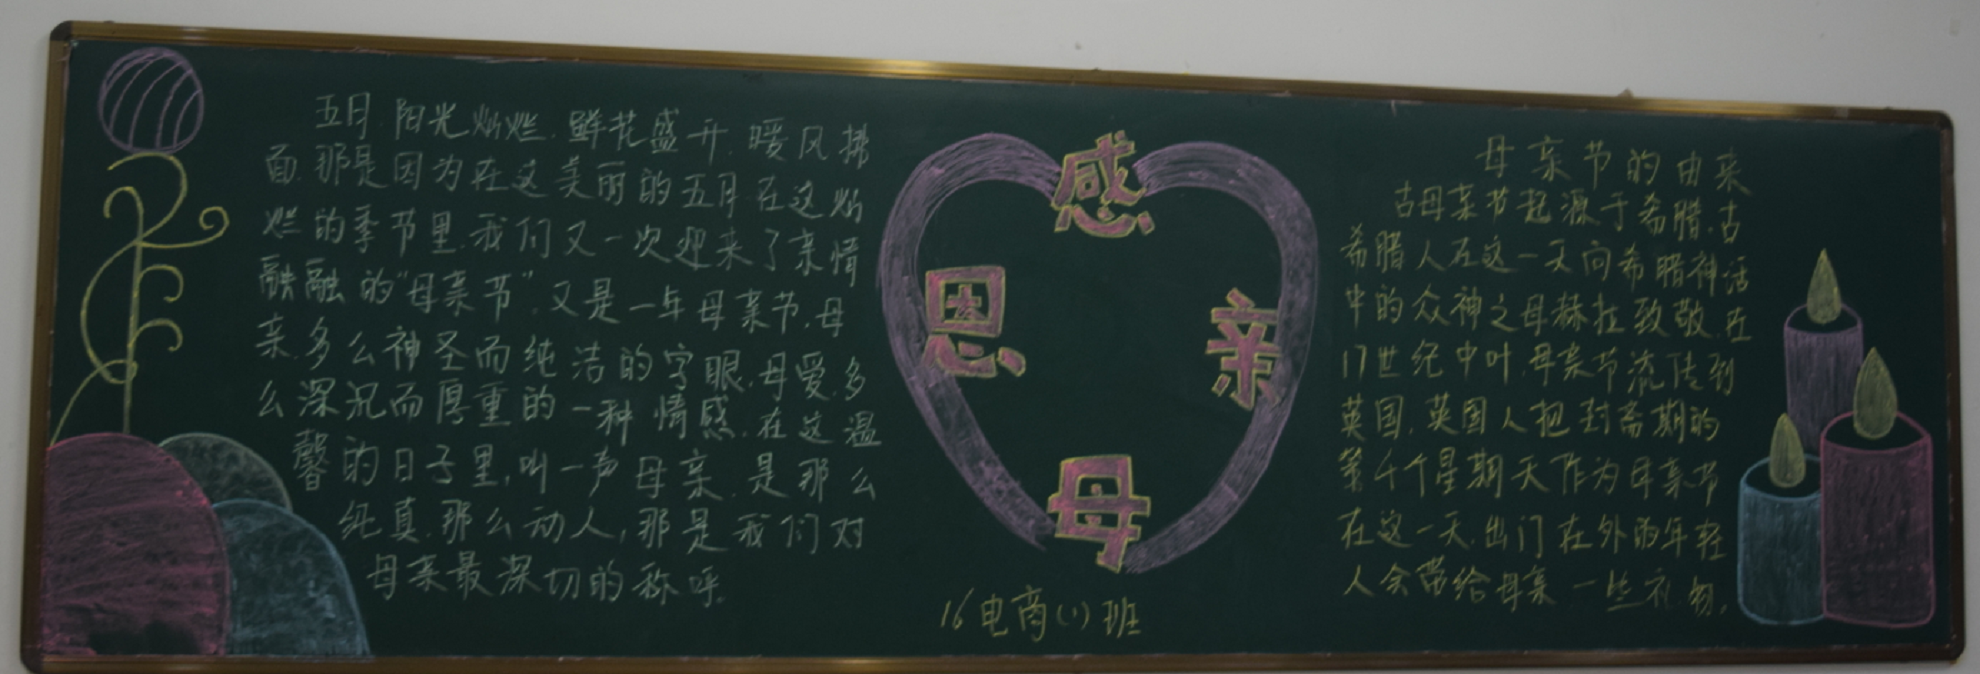 五月.阳光灿烂.鲜花盛开.暖风拂
面.那是因为在这美丽的五月在这灿
烂的季节里.我们又一次迎来了亲情
融融的“母亲节”.又是一年母亲节.母
亲.多么神圣而纯洁的字眼.母爱.多
么深沉而厚重的一种情感.在这温
馨的日子里,叫一声母亲.是那么
纯真.那么动人,那是我们对
母亲最深切的称呼.
感
恩
亲
母
16电商(1)班
母亲节的由来
古母亲节起源于希腊.古
希腊人在这一天向希腊神话
中的众神之母赫拉致敬.在
17世纪中叶.母亲节流传到
英国.英国人把封斋期的
第千个星期天作为母亲节
在这一天.出门在外的年轻
人会带给母亲一些礼物,